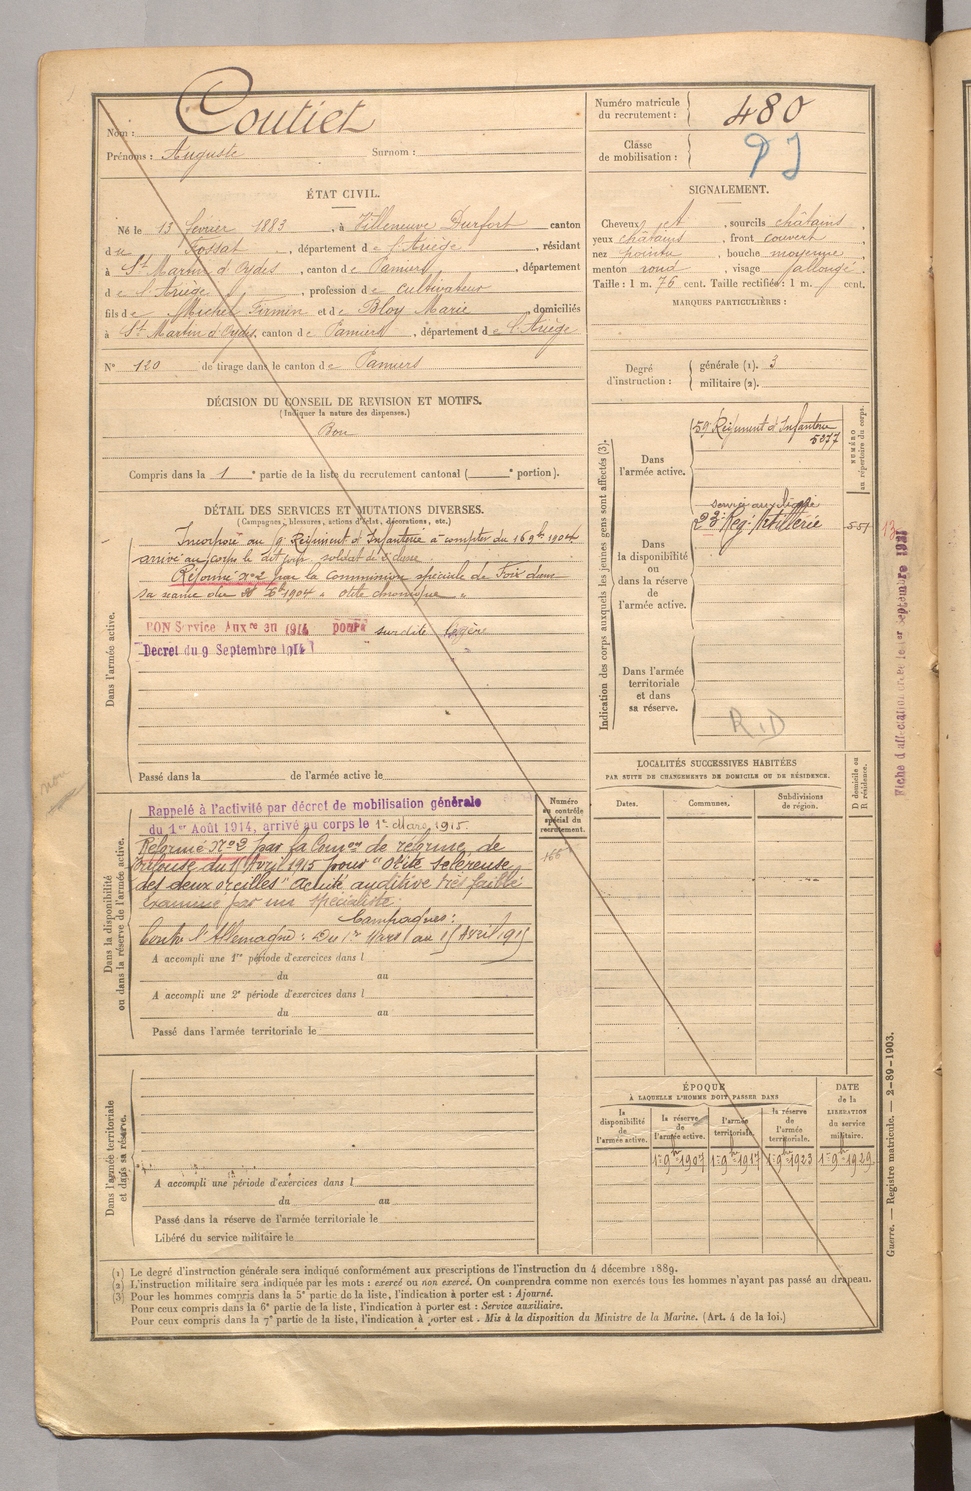 Nom : Coutiet
Prénoms : Auguste Surnom :
Numéro matricule du recrutement : 480
Classe de mobilisation : PJ
ÉTAT CIVIL.
Né le 13 février 1883, à Villeneuve Durfort canton
du Fossat, département de l'Ariège, résidant
à St Martin d'Oydes, canton de Pamiers, département
de l'Ariège, profession de cultivateur
fils de Michel Firmin et de Bloy Marie, domiciliés
à St Martin d'Oydes, canton de Pamiers, département de l'Ariège
N° 120 de tirage dans le canton de Pamiers
SIGNALEMENT.
Cheveux jet, sourcils châtains,
yeux châtains, front couvert,
nez pointu, bouche moyenne,
menton rond, visage allongé.
Taille : 1 m. 76 cent. Taille rectifiée : 1 m. cent.
MARQUES PARTICULIÈRES :
Degré d'instruction : générale (1). 3
militaire (2).
DÉCISION DU CONSEIL DE REVISION ET MOTIFS.
(Indiquer la nature des dispenses.)
Bon
Compris dans la 1e partie de la liste du recrutement cantonal ( e portion).
DÉTAIL DES SERVICES ET MUTATIONS DIVERSES.
(Campagnes, blessures, actions d'éclat, décorations, etc.)
Dans l'armée active.
Incorporé au 9e Régiment d'Infanterie à compter du 16 9bre 1904
arrivé au corps le dit jour, soldat de 2e classe
Réformé n° 2 par la Commission spéciale de Foix dans
sa séance du Xbre 1904 « otite chronique »
BON Service Auxre en 1914 pour surdité légère
Décret du 9 Septembre 1914
Passé dans la de l'armée active le
Dans la disponibilité ou dans la réserve de l'armée active.
Rappelé à l'activité par décret de mobilisation générale
du 1er Août 1914, arrivé au corps le 1er Mars 1915.
Réformé N° 2 par la Comon de réforme de
Toulouse du 15 Avril 1915 pour "Otite scléreuse
des deux oreilles" acuité auditive très faible
Examiné par un spécialiste.
Campagnes :
Contre l'Allemagne : Du 1er Mars au 15 Avril 1915
A accompli une 1re période d'exercices dans l
du au
A accompli une 2e période d'exercices dans l
du au
Passé dans l'armée territoriale le
Numéro au contrôle spécial du recrutement.
166
Dans l'armée territoriale et dans sa réserve.
A accompli une 1re période d'exercices dans l
du au
Passé dans la réserve de l'armée territoriale le
Libéré du service militaire le
Indication des corps auxquels les jeunes gens sont affectés (3).
NUMÉRO au répertoire du corps.
Dans l'armée active.
59e Régiment d'Infanterie
5077
Dans la disponibilité ou dans la réserve de l'armée active.
service auxiliaire
23e Reg. Artillerie 551
Dans l'armée territoriale et dans sa réserve.
R.D
Fiche d'affectation créée le 1er Septembre 19
LOCALITÉS SUCCESSIVES HABITÉES
PAR SUITE DE CHANGEMENTS DE DOMICILE OU DE RÉSIDENCE.
Dates. Communes. Subdivisions de région. D domicile ou R résidence.
ÉPOQUE
À LAQUELLE L'HOMME DOIT PASSER DANS
la disponibilité de l'armée active.
la réserve de l'armée active.
l'armée territoriale.
la réserve de l'armée territoriale.
DATE de la LIBÉRATION du service militaire.
1er 9bre 1907 1er 9bre 1917 1er 9bre 1923 1er 9bre 1929
Guerre. — Registre matricule. — 2-89-1903.
(1) Le degré d'instruction générale sera indiqué conformément aux prescriptions de l'instruction du 4 décembre 1889.
(2) L'instruction militaire sera indiquée par les mots : exercé ou non exercé. On comprendra comme non exercés tous les hommes n'ayant pas passé au drapeau.
(3) Pour les hommes compris dans la 5e partie de la liste, l'indication à porter est : Ajourné.
Pour ceux compris dans la 6e partie de la liste, l'indication à porter est : Service auxiliaire.
Pour ceux compris dans la 7e partie de la liste, l'indication à porter est : Mis à la disposition du Ministre de la Marine. (Art. 4 de la loi.)